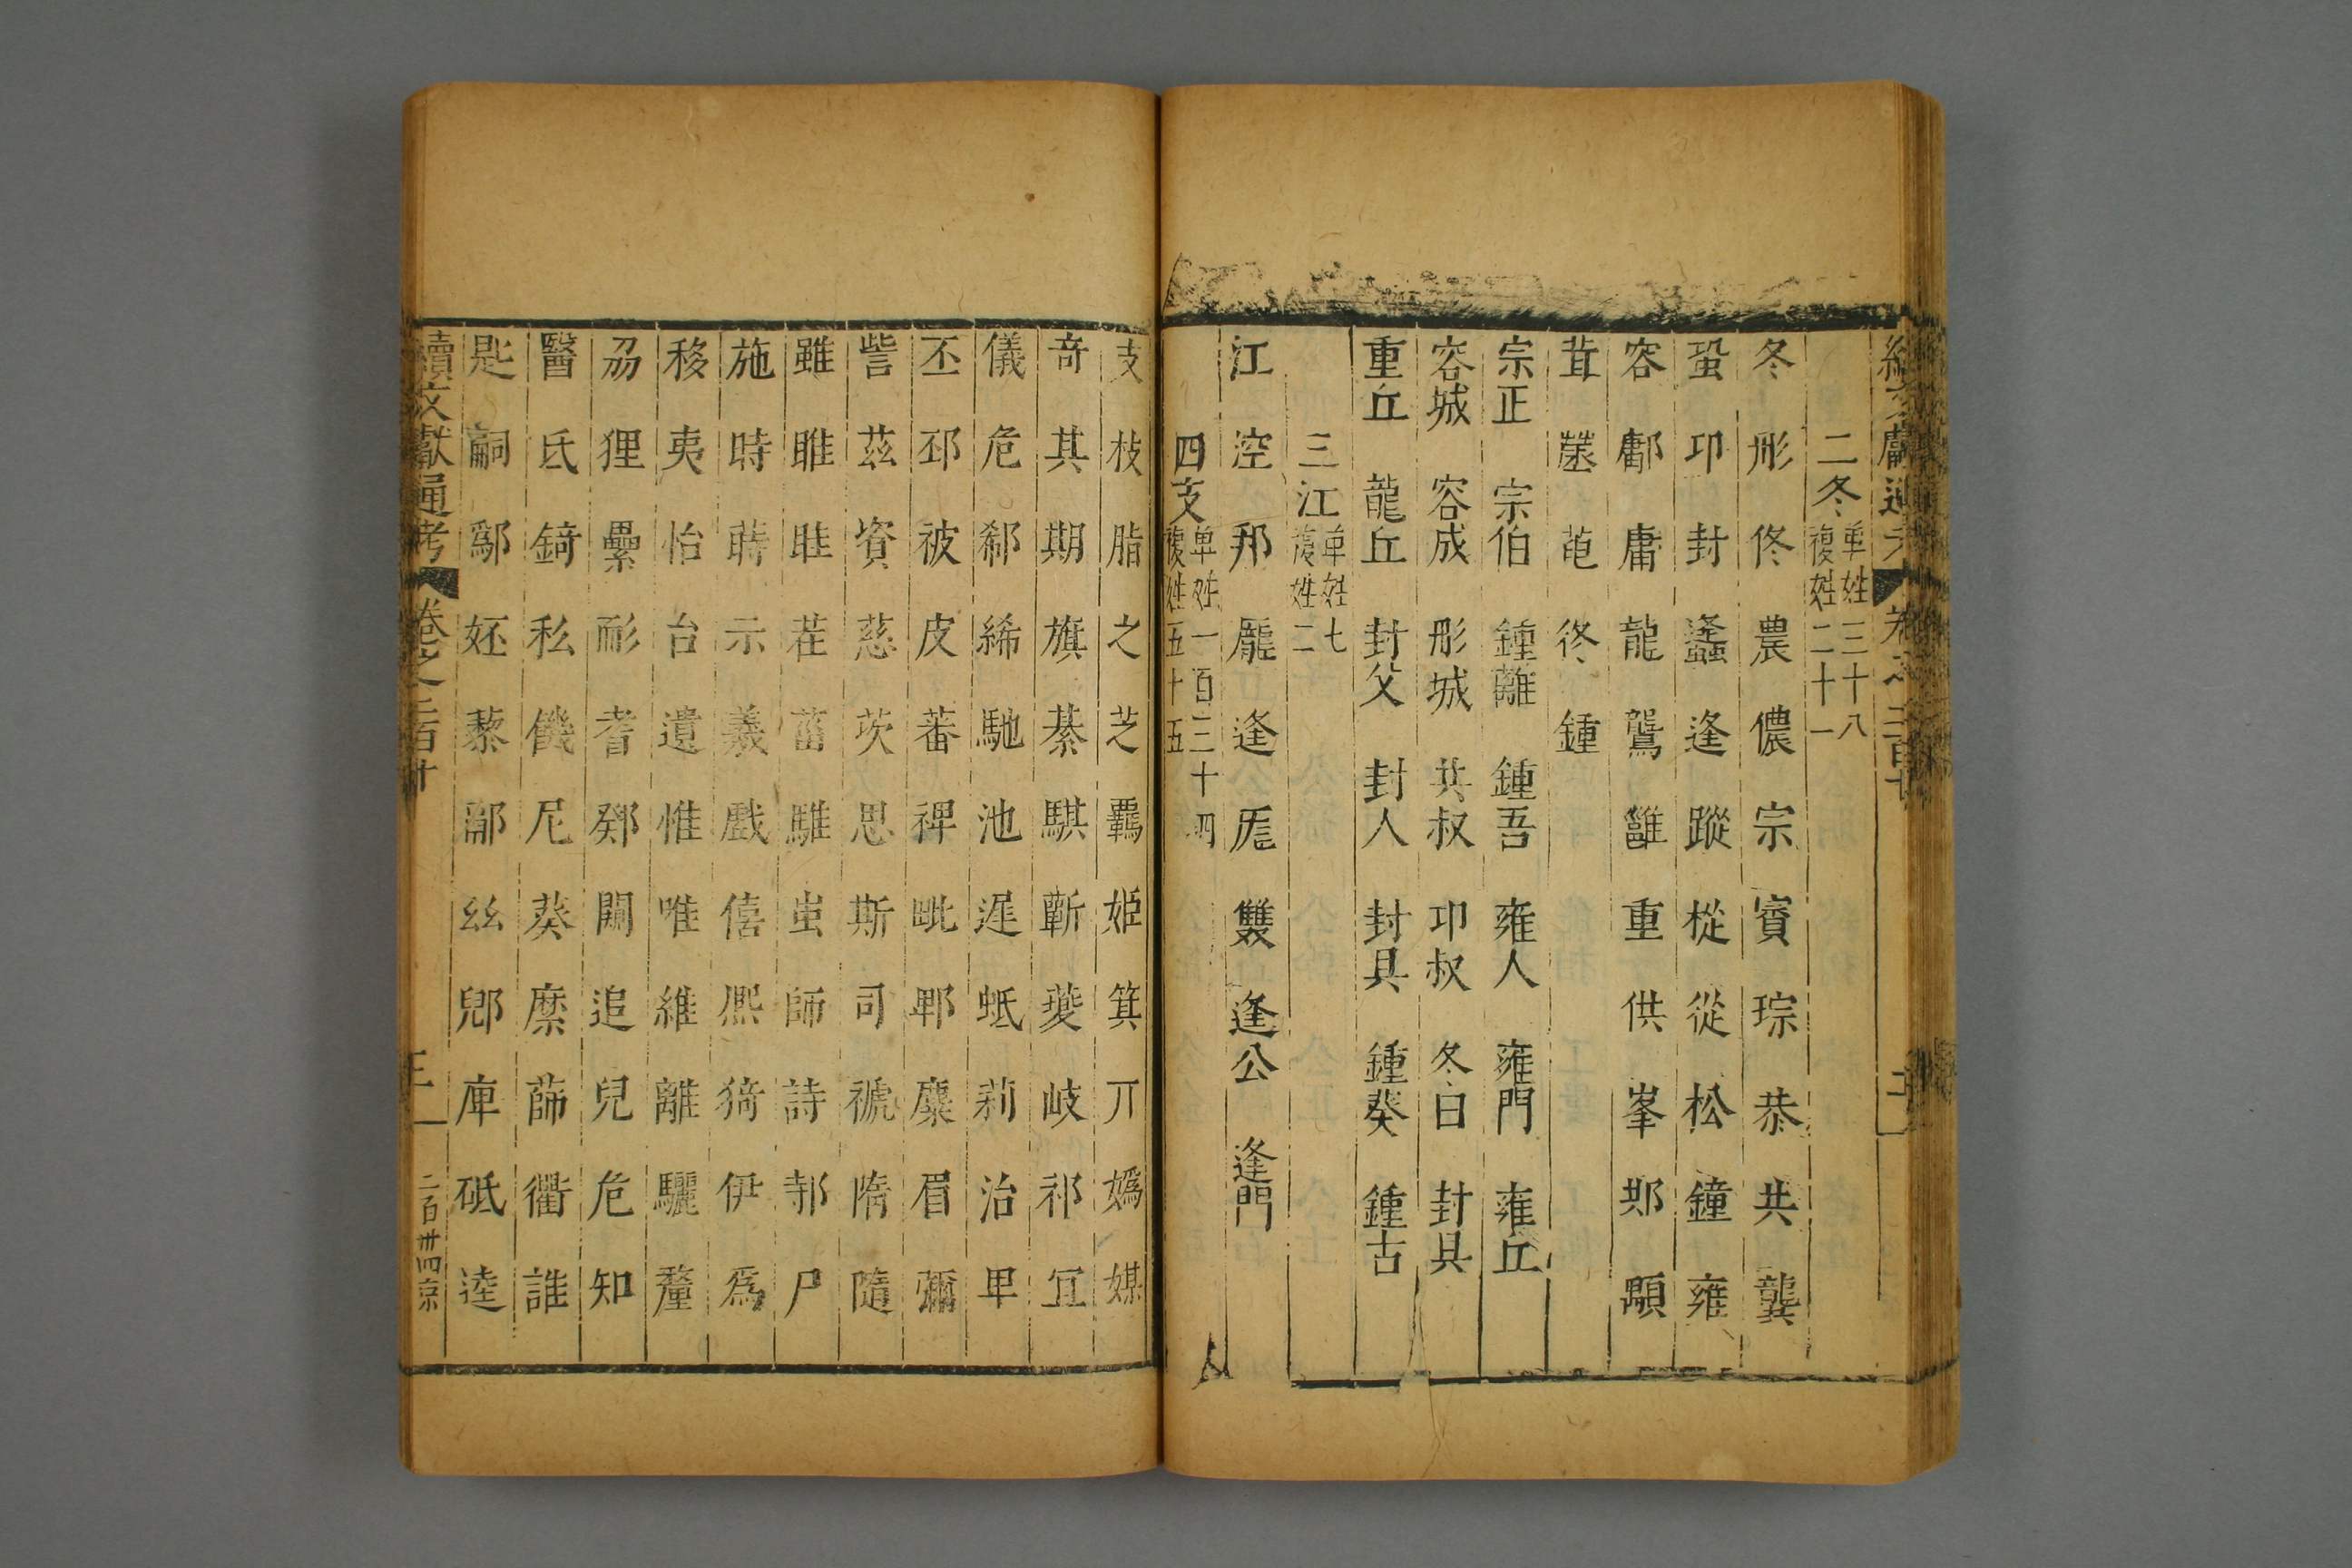 二冬 單姓三十八 複姓二十一
冬 彤 佟 農 儂 宗 賨 琮 恭 共 龔
蛩 卭 封 蠭 逢 蹤 樅 從 松 鐘 雍
容 鄘 庸 龍 鸗 雝 重 供 峯 邞 顒
茸 蓯 蓜 佟 鍾
宗正 宗伯 鍾離 鍾吾 雍人 雍門 雍丘
容城 容成 彤城 共叔 卭叔 冬日 封具
重丘 龍丘 封父 封人 封具 鍾葵 鍾古
三江 單姓七 複姓二
江 涳 邦 龐 逄 厖 雙 逄公 逄門
四支 單姓一百三十四 複姓五十五
支 枝 脂 之 芝 羈 姬 箕 丌 嬀 媒
奇 其 期 旗 綦 騏 蘄 夔 岐 祁 宜
儀 危 郗 絺 馳 池 遲 蚳 莉 治 𤰞
丕 邳 被 皮 蕃 裨 毗 郫 麋 眉 彌
訾 茲 資 慈 茨 思 斯 司 禠 隋 隨
雖 睢 眭 茬 菑 騅 蚩 師 詩 邿 尸
施 時 蒔 示 羲 戲 僖 熈 猗 伊 爲
移 夷 怡 台 遺 惟 唯 維 離 驪 釐
刕 狸 纍 耏 耆 郰 闞 追 兒 危 知
醫 氐 錡 私 僟 尼 葵 縻 蒒 衢 誰
匙 嗣 鄬 妚 藜 郮 丝 郳 庳 砥 逵
續文獻通考 卷之二百十 二百卅四